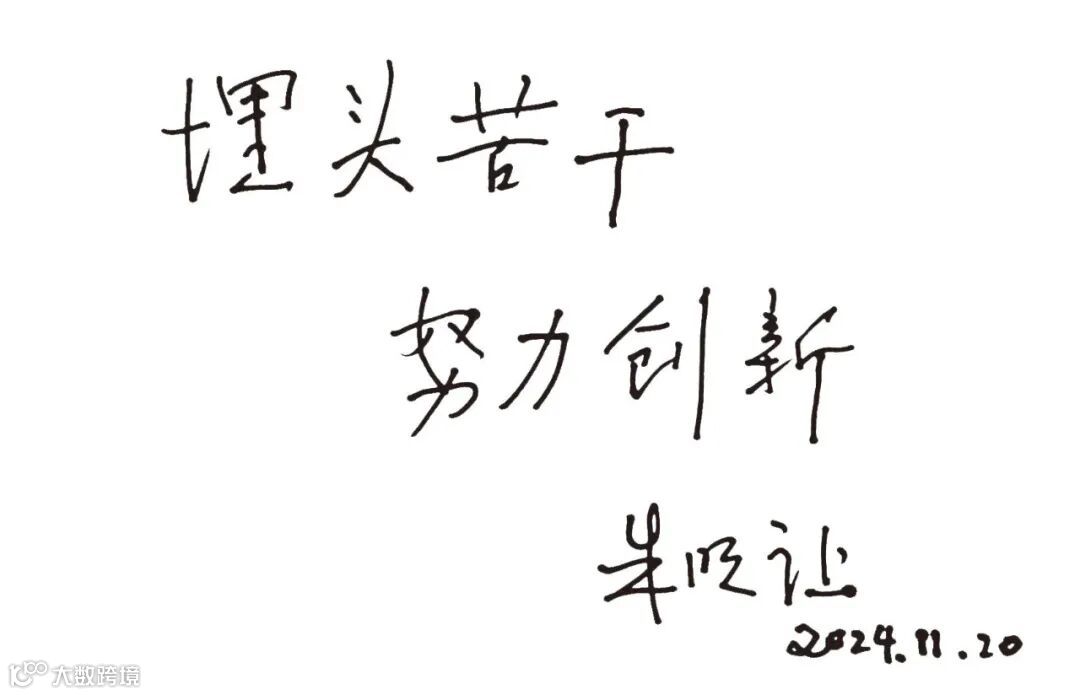 埋头苦干
努力创新
朱明让
2024.11.20
大数跨境